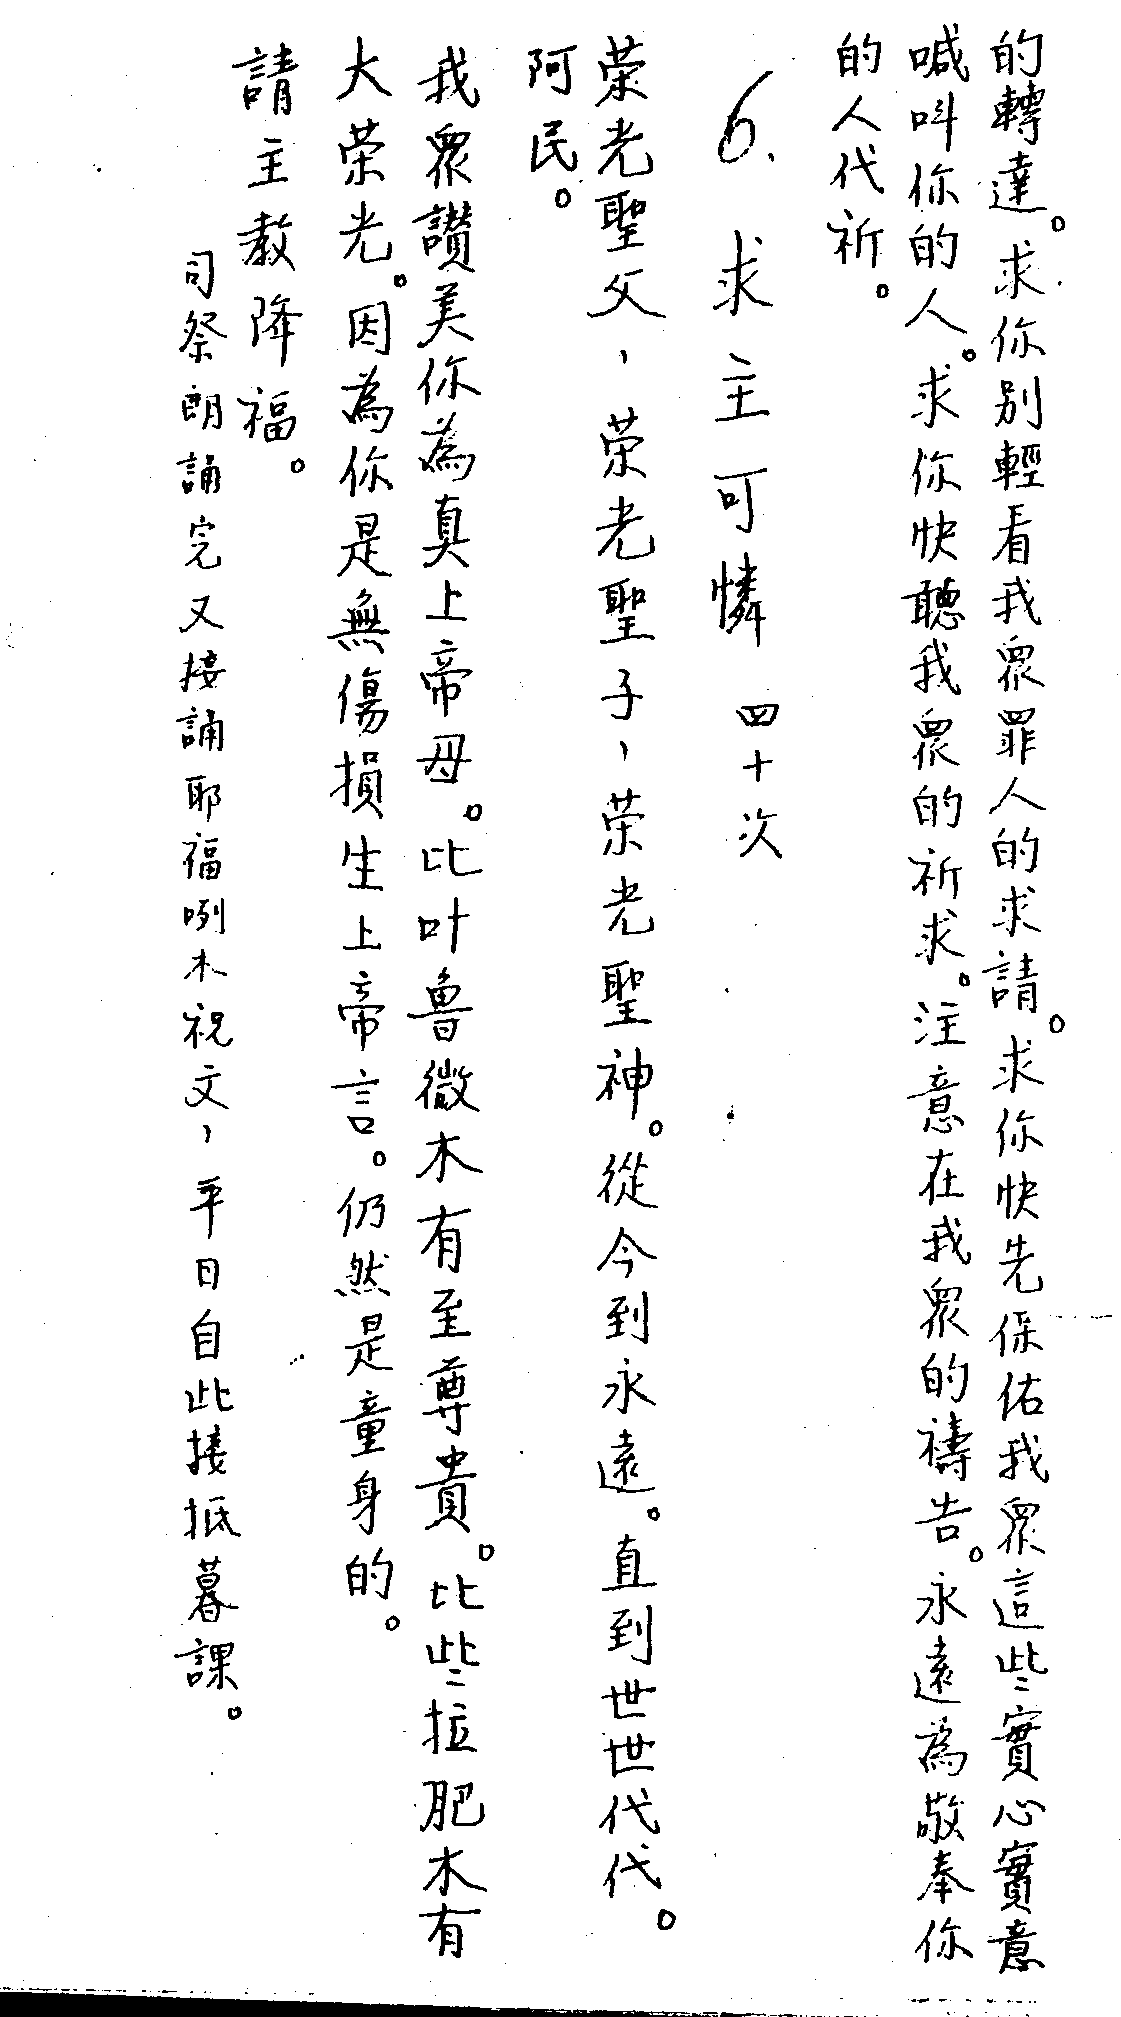 的轉達。求你别輕看我衆罪人的求請。求你快先保佑我衆這些實心實意
喊叫你的人。求你快聽我衆的祈求。注意在我衆的禱告。永遠為敬奉你
的人代祈。
6. 求主可憐 四十次
荣光聖父，荣光聖子，荣光聖神。從今到永遠。直到世世代代。
阿民。
我衆讃美你為真上帝母。比叶魯微木有至尊貴。比些拉肥木有
大荣光。因為你是無傷損生上帝言。仍然是童身的。
請主教降福。
司祭朗誦完又接誦耶福咧木祝文，平日自此接抵暮課。